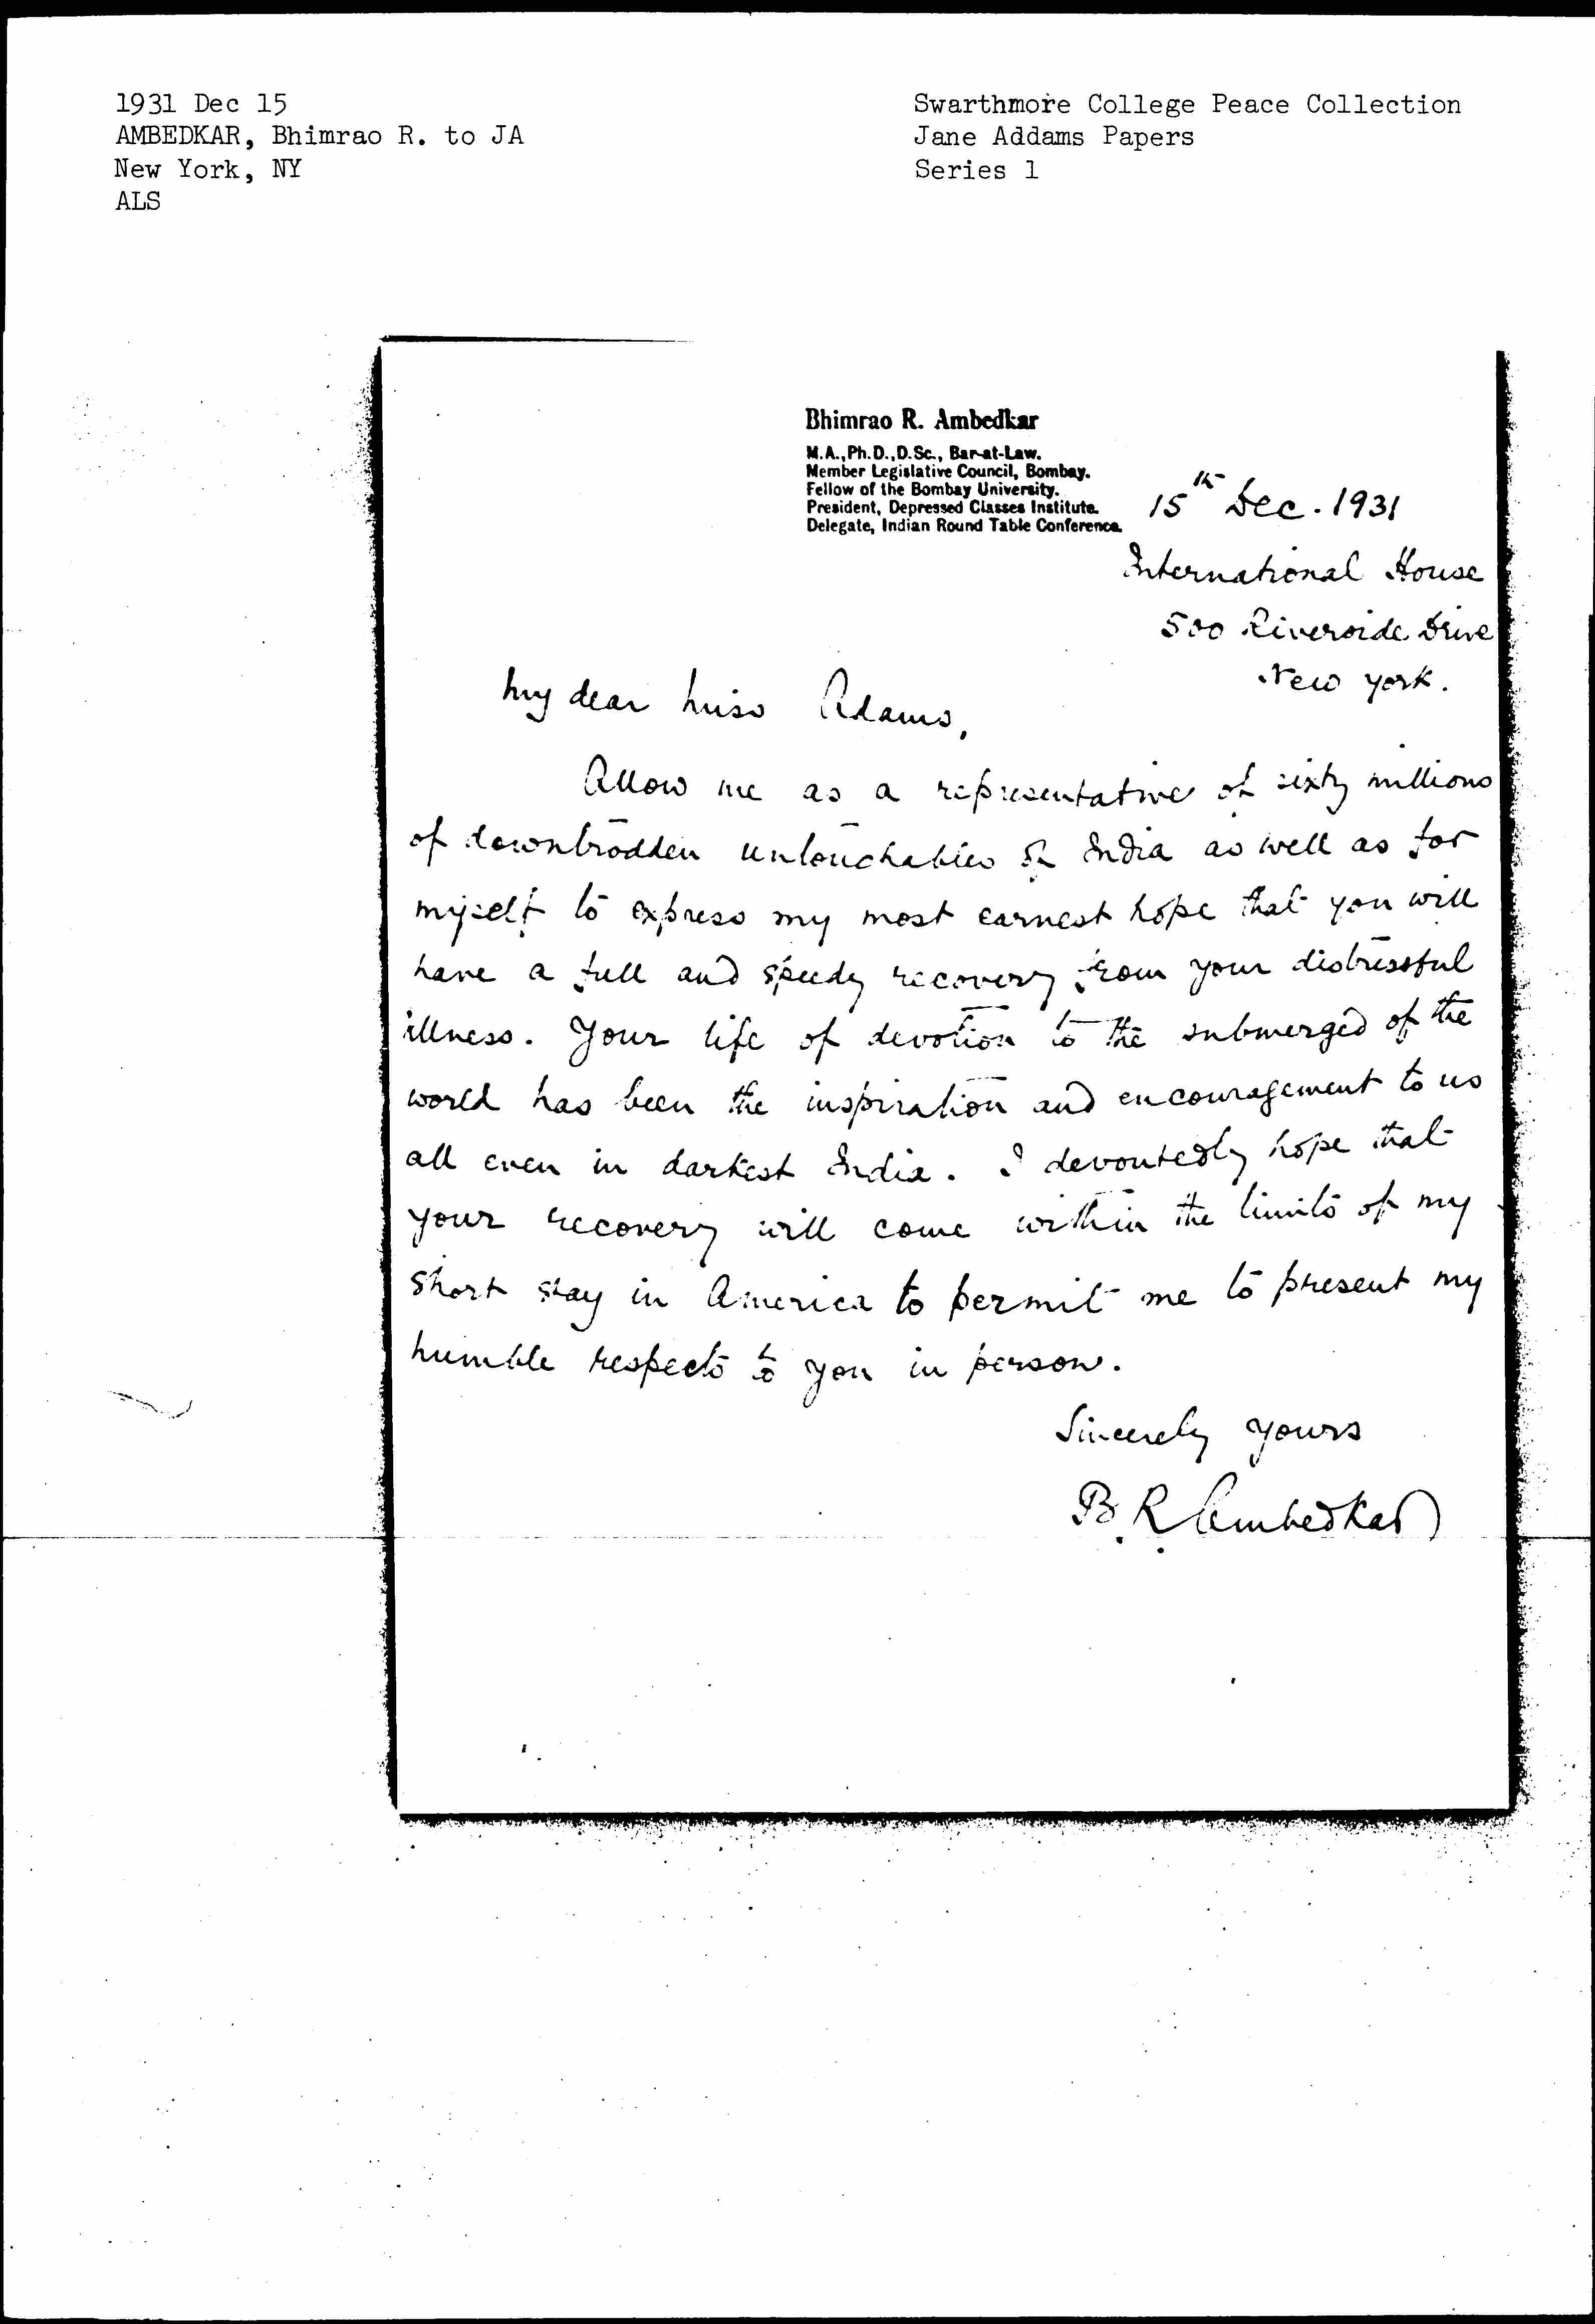 1931 Dec 15
AMBEDKAR, Bhimrao R. to JA
New York, NY
ALS
Swarthmore College Peace Collection
Jane Addams Papers
Series 1
Bhimrao R. Ambedkar
M.A., Ph.D., D.Sc., Bar-at-Law.
Member Legislative Council, Bombay.
Fellow of the Bombay University.
President, Depressed Classes Institute.
Delegate, Indian Round Table Conference.
15th Dec. 1931
International House
500 Riverside Drive
New York.
My dear Miss Adams,
Allow me as a representative of sixty millions
of downtrodden untouchables of India as well as for
myself to express my most earnest hope that you will
have a full and speedy recovery from your distressful
illness. Your life of devotion to the submerged of the
world has been the inspiration and encouragement to us
all even in darkest India. I devoutedly hope that
your recovery will come within the limits of my
short stay in America to permit me to present my
humble respects to you in person.
Sincerely yours
B. R. Ambedkar